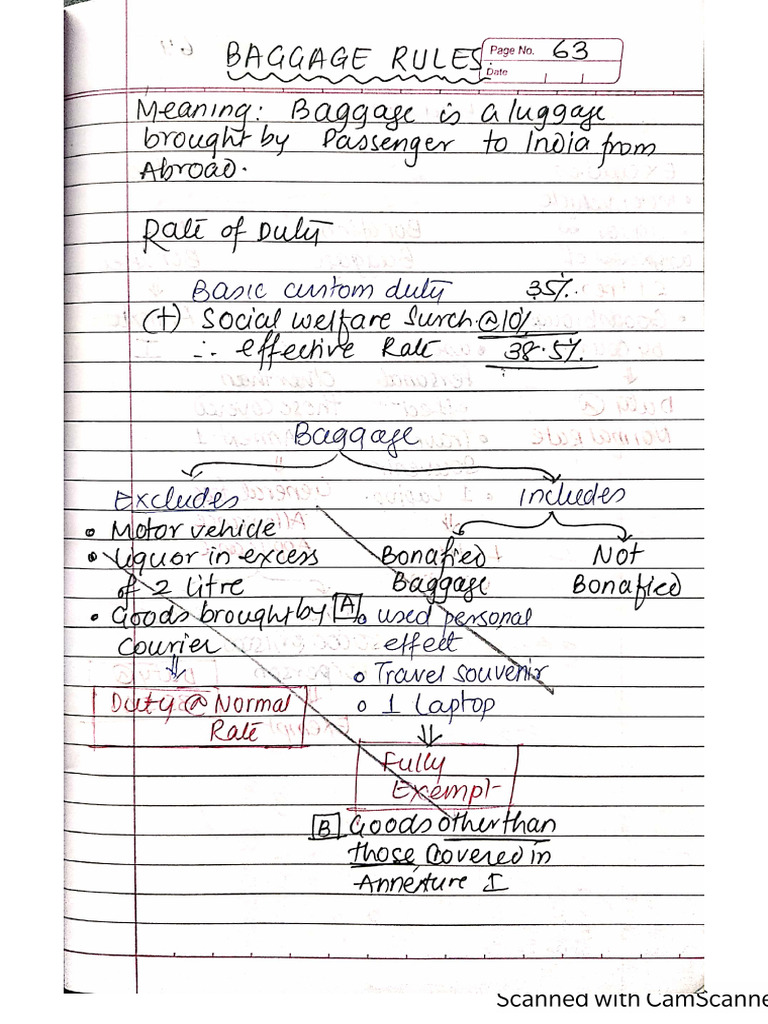 BAGGAGE RULES
Page No. 63
Date
Meaning: Baggage is a luggage
brought by Passenger to India from
Abroad.
Rate of Duty
Basic custom duty 35%.
(+) Social welfare Surch. @10%
∴ effective Rate 38.5%
Baggage
Excludes
• Motor vehicle
• Liquor in excess
of 2 litre
• Goods brought by
Courier
⇓
Duty @ Normal
Rate
includes
Bonafied
Baggage
Not
Bonafied
A
o used personal
effect
o Travel souvenir
o 1 Laptop
⇓
Fully
Exempt
B Goods other than
those Covered in
Annexture I
Scanned with CamScanne